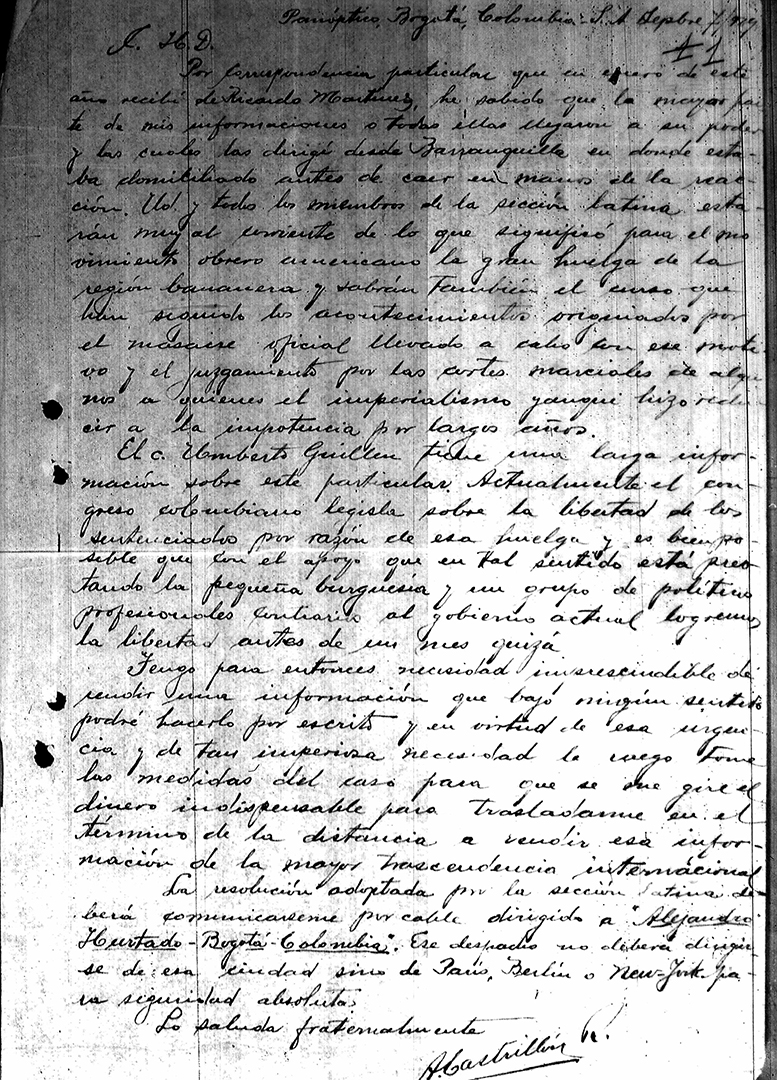 Panóptico, Bogotá, Colombia - S. A. Sepbre 7/929
J. H. D.
Por correspondencia particular que en enero de este
año recibí de Ricardo Martínez, he sabido que la mayor par
te de mis informaciones o todas ellas llegaron a su poder
y las cuales las dirigí desde Barranquilla en donde esta-
ba domiciliado antes de caer en manos de la reac-
ción. Ud. y todos los miembros de la sección latina esta-
rán muy al corriente de lo que significó para el mo
vimiento obrero americano la gran huelga de la
región bananera y sabrán también el curso que
han seguido los acontecimientos originados por
el masacre oficial llevado a cabo con ese moti-
vo y el juzgamiento por las cortes marciales de algu
nos a quienes el imperialismo yanqui hizo redu-
cir a la impotencia por largos años.
El c. Umberto Guillen tiene una larga infor-
mación sobre este particular. Actualmente el con-
greso colombiano legisla sobre la libertad de los
sentenciados por razón de esa huelga y es bien po-
sible que con el apoyo que en tal sentido está pres
tando la pequeña burguesía y un grupo de políticos
profesionales contrarios al gobierno actual logremos
la libertad antes de un mes quizá.
Tengo para entonces necesidad imprescindible de
rendir una información que bajo ningún sentido
podré hacerlo por escrito y en virtud de esa urgen-
cia y de tan imperiosa necesidad le ruego tome
las medidas del caso para que se me gire el
dinero indispensable para trasladarme en el
término de la distancia a rendir esa infor-
mación de la mayor trascendencia internacional
La resolución adoptada por la sección latina de-
berá comunicárseme por cable dirigido a "Alejandro
Hurtado - Bogotá - Colombia". Ese despacho no deberá dirigir-
se de esa ciudad sino de París, Berlín o New-York pa-
ra seguridad absoluta.
Lo saluda fraternalmente
A. Castrillón R.